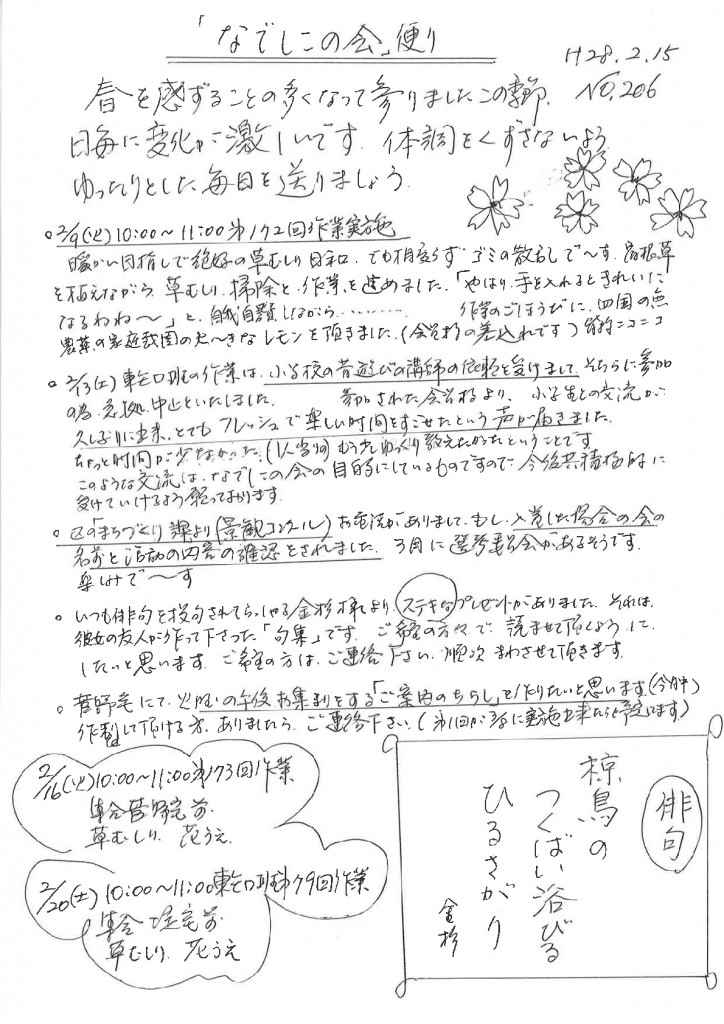 「なでしこの会」便り
H28.2.15
NO.206
春を感ずることの多くなって参りましたこの季節、
日毎に変化が激しいです。体調をくずさないよう
ゆったりとした毎日を送りましょう。
○2/9(火)10:00〜11:00第172回作業実施
暖かい日指しで絶好の草むしり日和。でも相変らずゴミの散乱で〜す。
を植えながら、草むしり、掃除と、作業を進めました。「やはり、手を入れるときれいに
なるわね〜」と、自我自賛しながら………… 作業のごほうびに、四国の無
農薬の家庭菜園の大〜きなレモンを頂きました。(会員様の差入れです)皆ニコニコ
○2/13(土)東口班の作業は、小学校の昔遊びの講師の依頼を受けまして、そちらに参加
の為、急拠、中止といたしました。 参加された会員様より、小学生との交流が
久しぶりに出来、とてもフレッシュで楽しい時間をすごせたという声が届きました。
ちょっと時間が少なかった。(1人当りの)もう少しゆっくり教えたかったということです
このような交流は、なでしこの会の目的にしているものですので、今後共積極的に
受けていけるよう願っております。
○区の「まちづくり課より(景観コンクール)お電話がありまして、もし、入賞した場合の会の
名前と活動の内容の確認をされました。3月に選考委員会があるそうです。
楽しみで〜す
○いつも俳句を投句されてらっしゃる金杉様より、ステキなプレゼントがありました。それは、
彼女の友人が作って下さった「句集」です。ご希望の方々で、読ませて頂くように
したいと思います。ご希望の方は、ご連絡下さい。順次まわさせて頂きます。
○菅野宅にて、火曜の午後お集りをする「ご案内のちらし」を作りたいと思います(今月中)
作製して下ける方、ありましたら、ご連絡下さい。(第1回が3月に実施出来たらと予定してます)
2/16(火)10:00〜11:00第173回作業
集合菅野宅前
草むしり、花うえ
2/20(土)10:00〜11:00東口班第79回作業
集合 宅前
草むしり、花うえ
俳句
椋鳥の
つくばい浴びる
ひるさがり
金杉